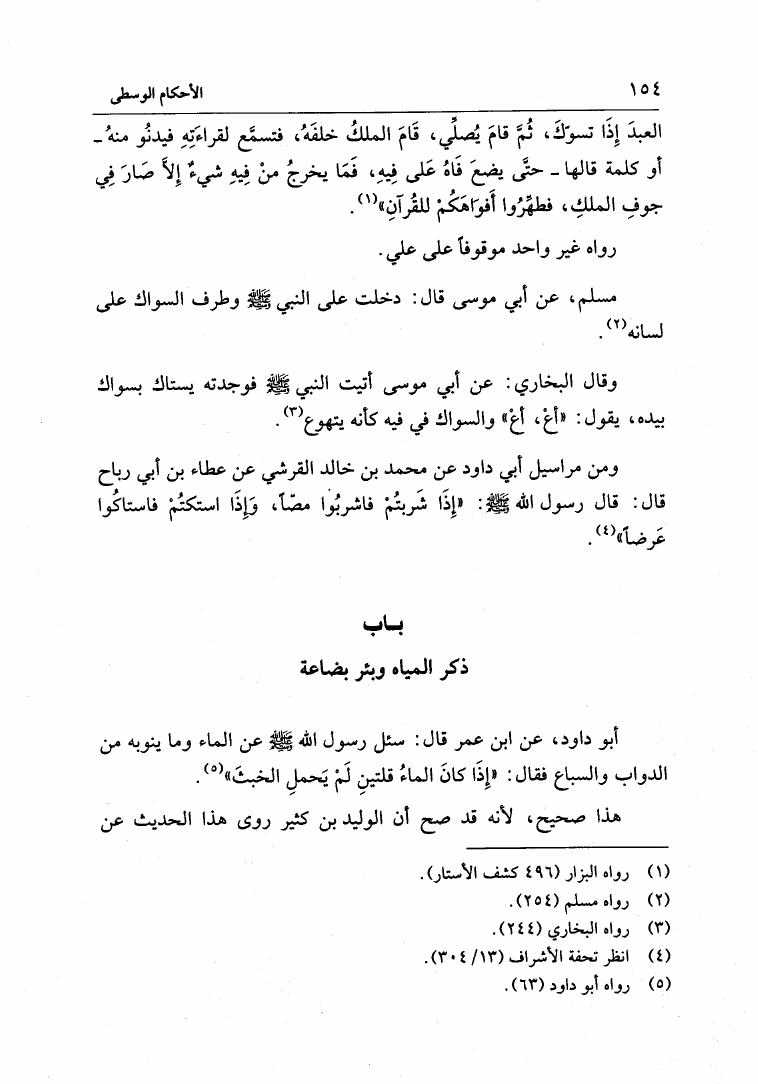 ١٥٤ الأحكام الوسطى
العبدَ إِذَا تسوّكَ، ثُمَّ قامَ يُصلِّي، قَامَ الملكُ خلفَهُ، فتسمَّع لقراءَتِهِ فيدنُو منهُ ـ
أو كلمة قالها ـ حتَّى يضعَ فَاهُ عَلى فِيهِ، فَمَا يخرجُ منْ فِيهِ شيءٌ إِلاَّ صَارَ فِي
جوفِ الملكِ، فطهِّرُوا أَفواهَكُمْ للقُرآنِ»(١).
رواه غير واحد موقوفاً على علي.
مسلم، عن أبي موسى قال: دخلت على النبي ﷺ وطرف السواك على
لسانه(٢).
وقال البخاري: عن أبي موسى أتيت النبي ﷺ فوجدته يستاك بسواك
بيده، يقول: «أعْ، أعْ» والسواك في فيه كأنه يتهوع(٣).
ومن مراسيل أبي داود عن محمد بن خالد القرشي عن عطاء بن أبي رباح
قال: قال رسول الله ﷺ: «إِذَا شَربتُمْ فاشربُوا مصّاً، وَإِذَا استكتُمْ فاستاكُوا
عَرضاً»(٤).
بـاب
ذكر المياه وبئر بضاعة
أبو داود، عن ابن عمر قال: سئل رسول الله ﷺ عن الماء وما ينوبه من
الدواب والسباع فقال: «إِذَا كانَ الماءُ قلتينِ لَمْ يَحملِ الخبثَ»(٥).
هذا صحيح، لأنه قد صح أن الوليد بن كثير روى هذا الحديث عن
(١) رواه البزار (٤٩٦ كشف الأستار).
(٢) رواه مسلم (٢٥٤).
(٣) رواه البخاري (٢٤٤).
(٤) انظر تحفة الأشراف (١٣/ ٣٠٤).
(٥) رواه أبو داود (٦٣).